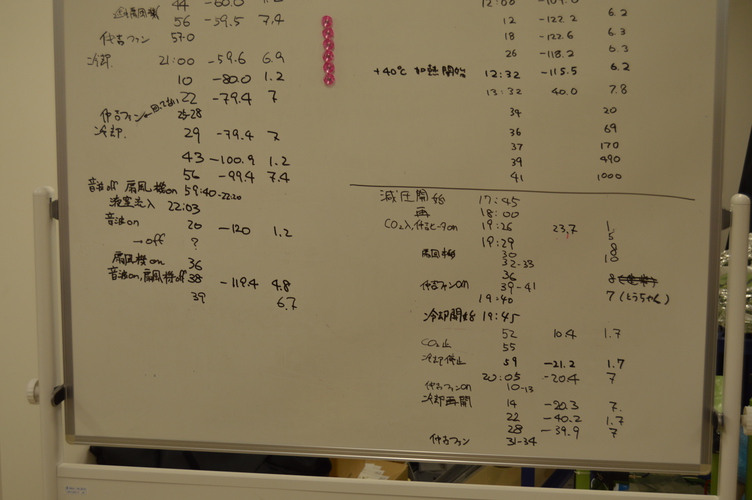 44 -60.0
扇風機 56 -59.5 7.4
竹吉ファン 57.0
冷却 21:00 -59.6 6.9
10 -80.0 1.2
22 -79.4 7
竹吉ファン 25-28
冷却 29 -79.4 7
43 -100.9 1.2
56 -99.4 7.4
音波off 扇風機on 59:40-22:20
液室注入 22:03
音波on 20 -120 1.2
→off ?
扇風機on 36
音波on,扇風機off 38 -119.4 4.8
39 6.7
12:00 -109.0
12 -122.2 6.2
18 -122.6 6.3
26 -118.2 6.3
+40℃ 加熱開始 12:32 -115.5 6.2
13:32 40.0 7.8
34 20
36 69
37 170
39 490
41 1000
減圧開始 17:45
再 18:00
CO2入 19:26 23.7 1
19:29 5
扇風機 30 8
32-33 10
36 8
竹吉ファンon 39-41
19:40 7 (とうちゃん)
冷却開始 19:45
52 10.4 1.7
CO2止 55
冷却停止 59 -21.2 1.7
20:05 -20.4 7
竹吉ファンon 10-13
冷却再開 14 -20.3 7.
22 -40.2 1.7
28 -39.9 7
竹吉ファン 31-34